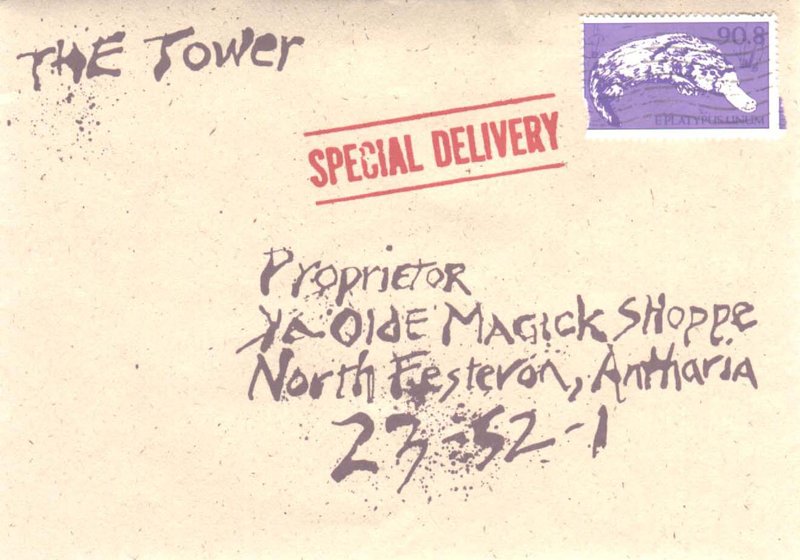 THE Tower
90.8
E PLATYPUS UNUM
SPECIAL DELIVERY
Proprietor
Ya Olde Magick Shoppe
North Eesterón, Antharia
23-52-1